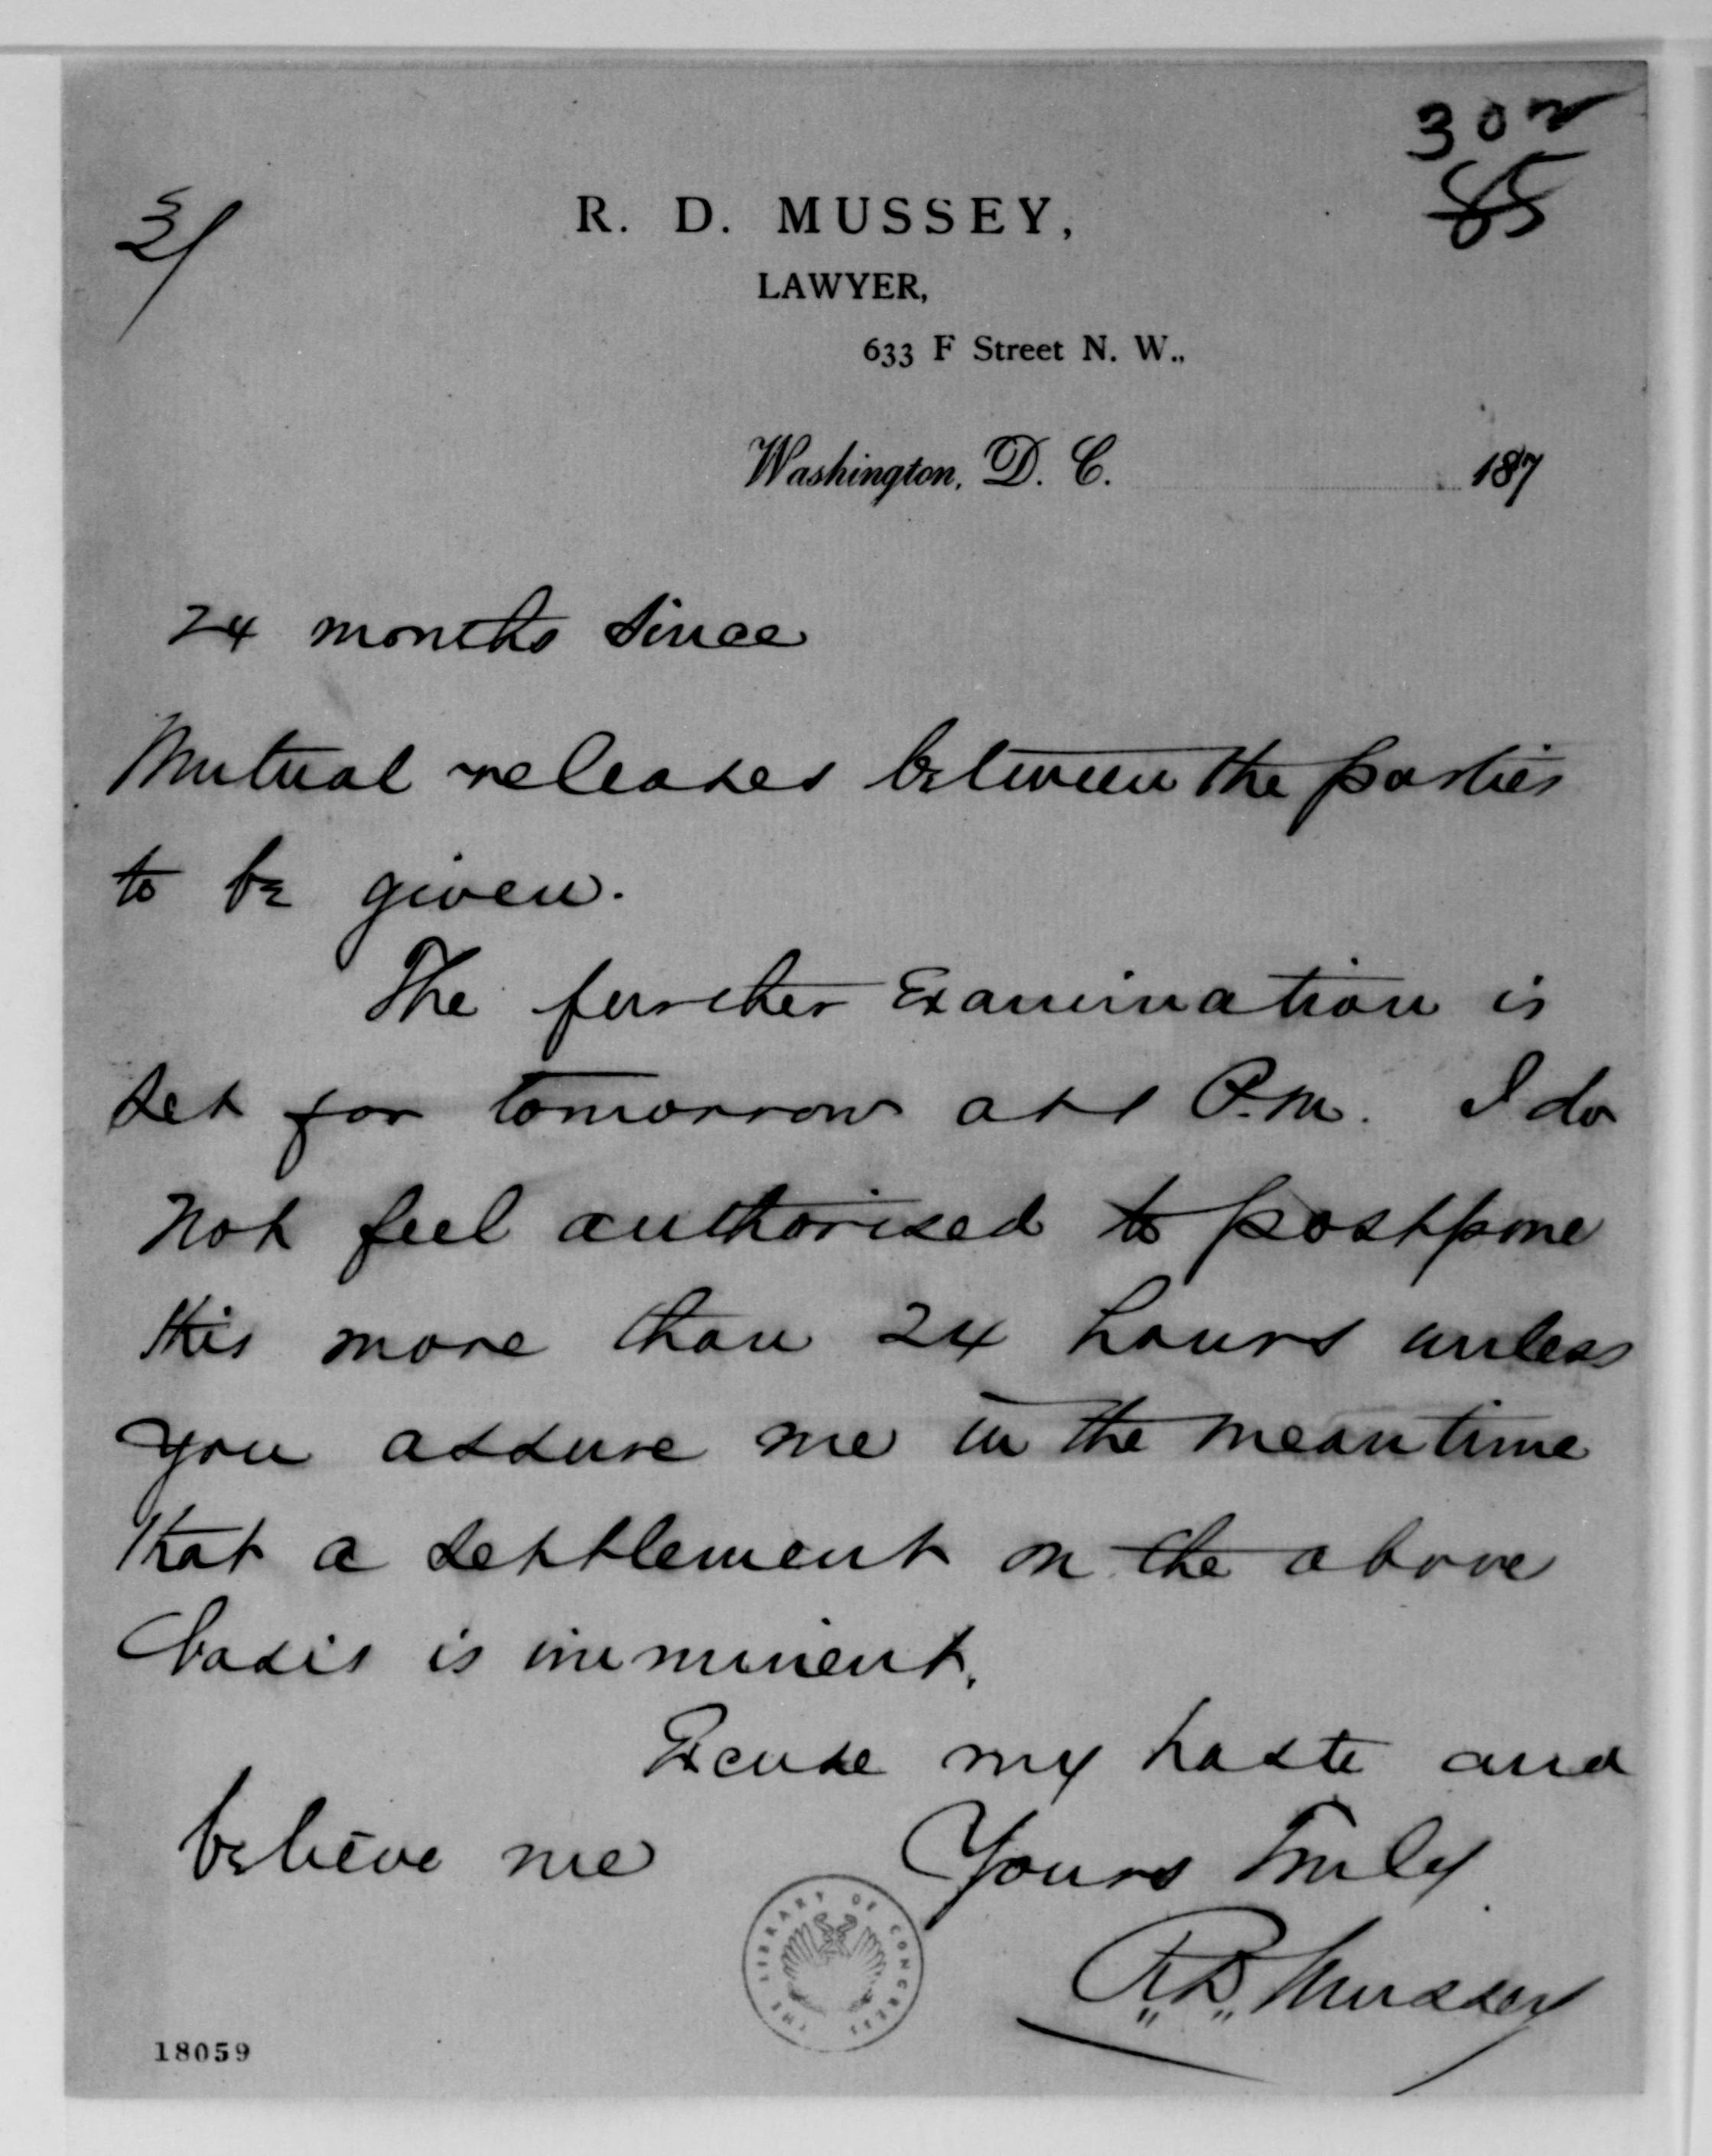 302
85
3/
R. D. MUSSEY,
LAWYER,
633 F Street N. W.,
Washington, D. C. 187
24 months since
Mutual releases between the parties
to be given.
The further Examination is
set for tomorrow at 1 P.M. I do
not feel authorised to postpone
this more than 24 hours unless
you assure me in the meantime
that a settlement on the above
basis is imminent.
Excuse my haste and
believe me Yours Truly
R.D. Mussey
THE LIBRARY OF CONGRESS
18059